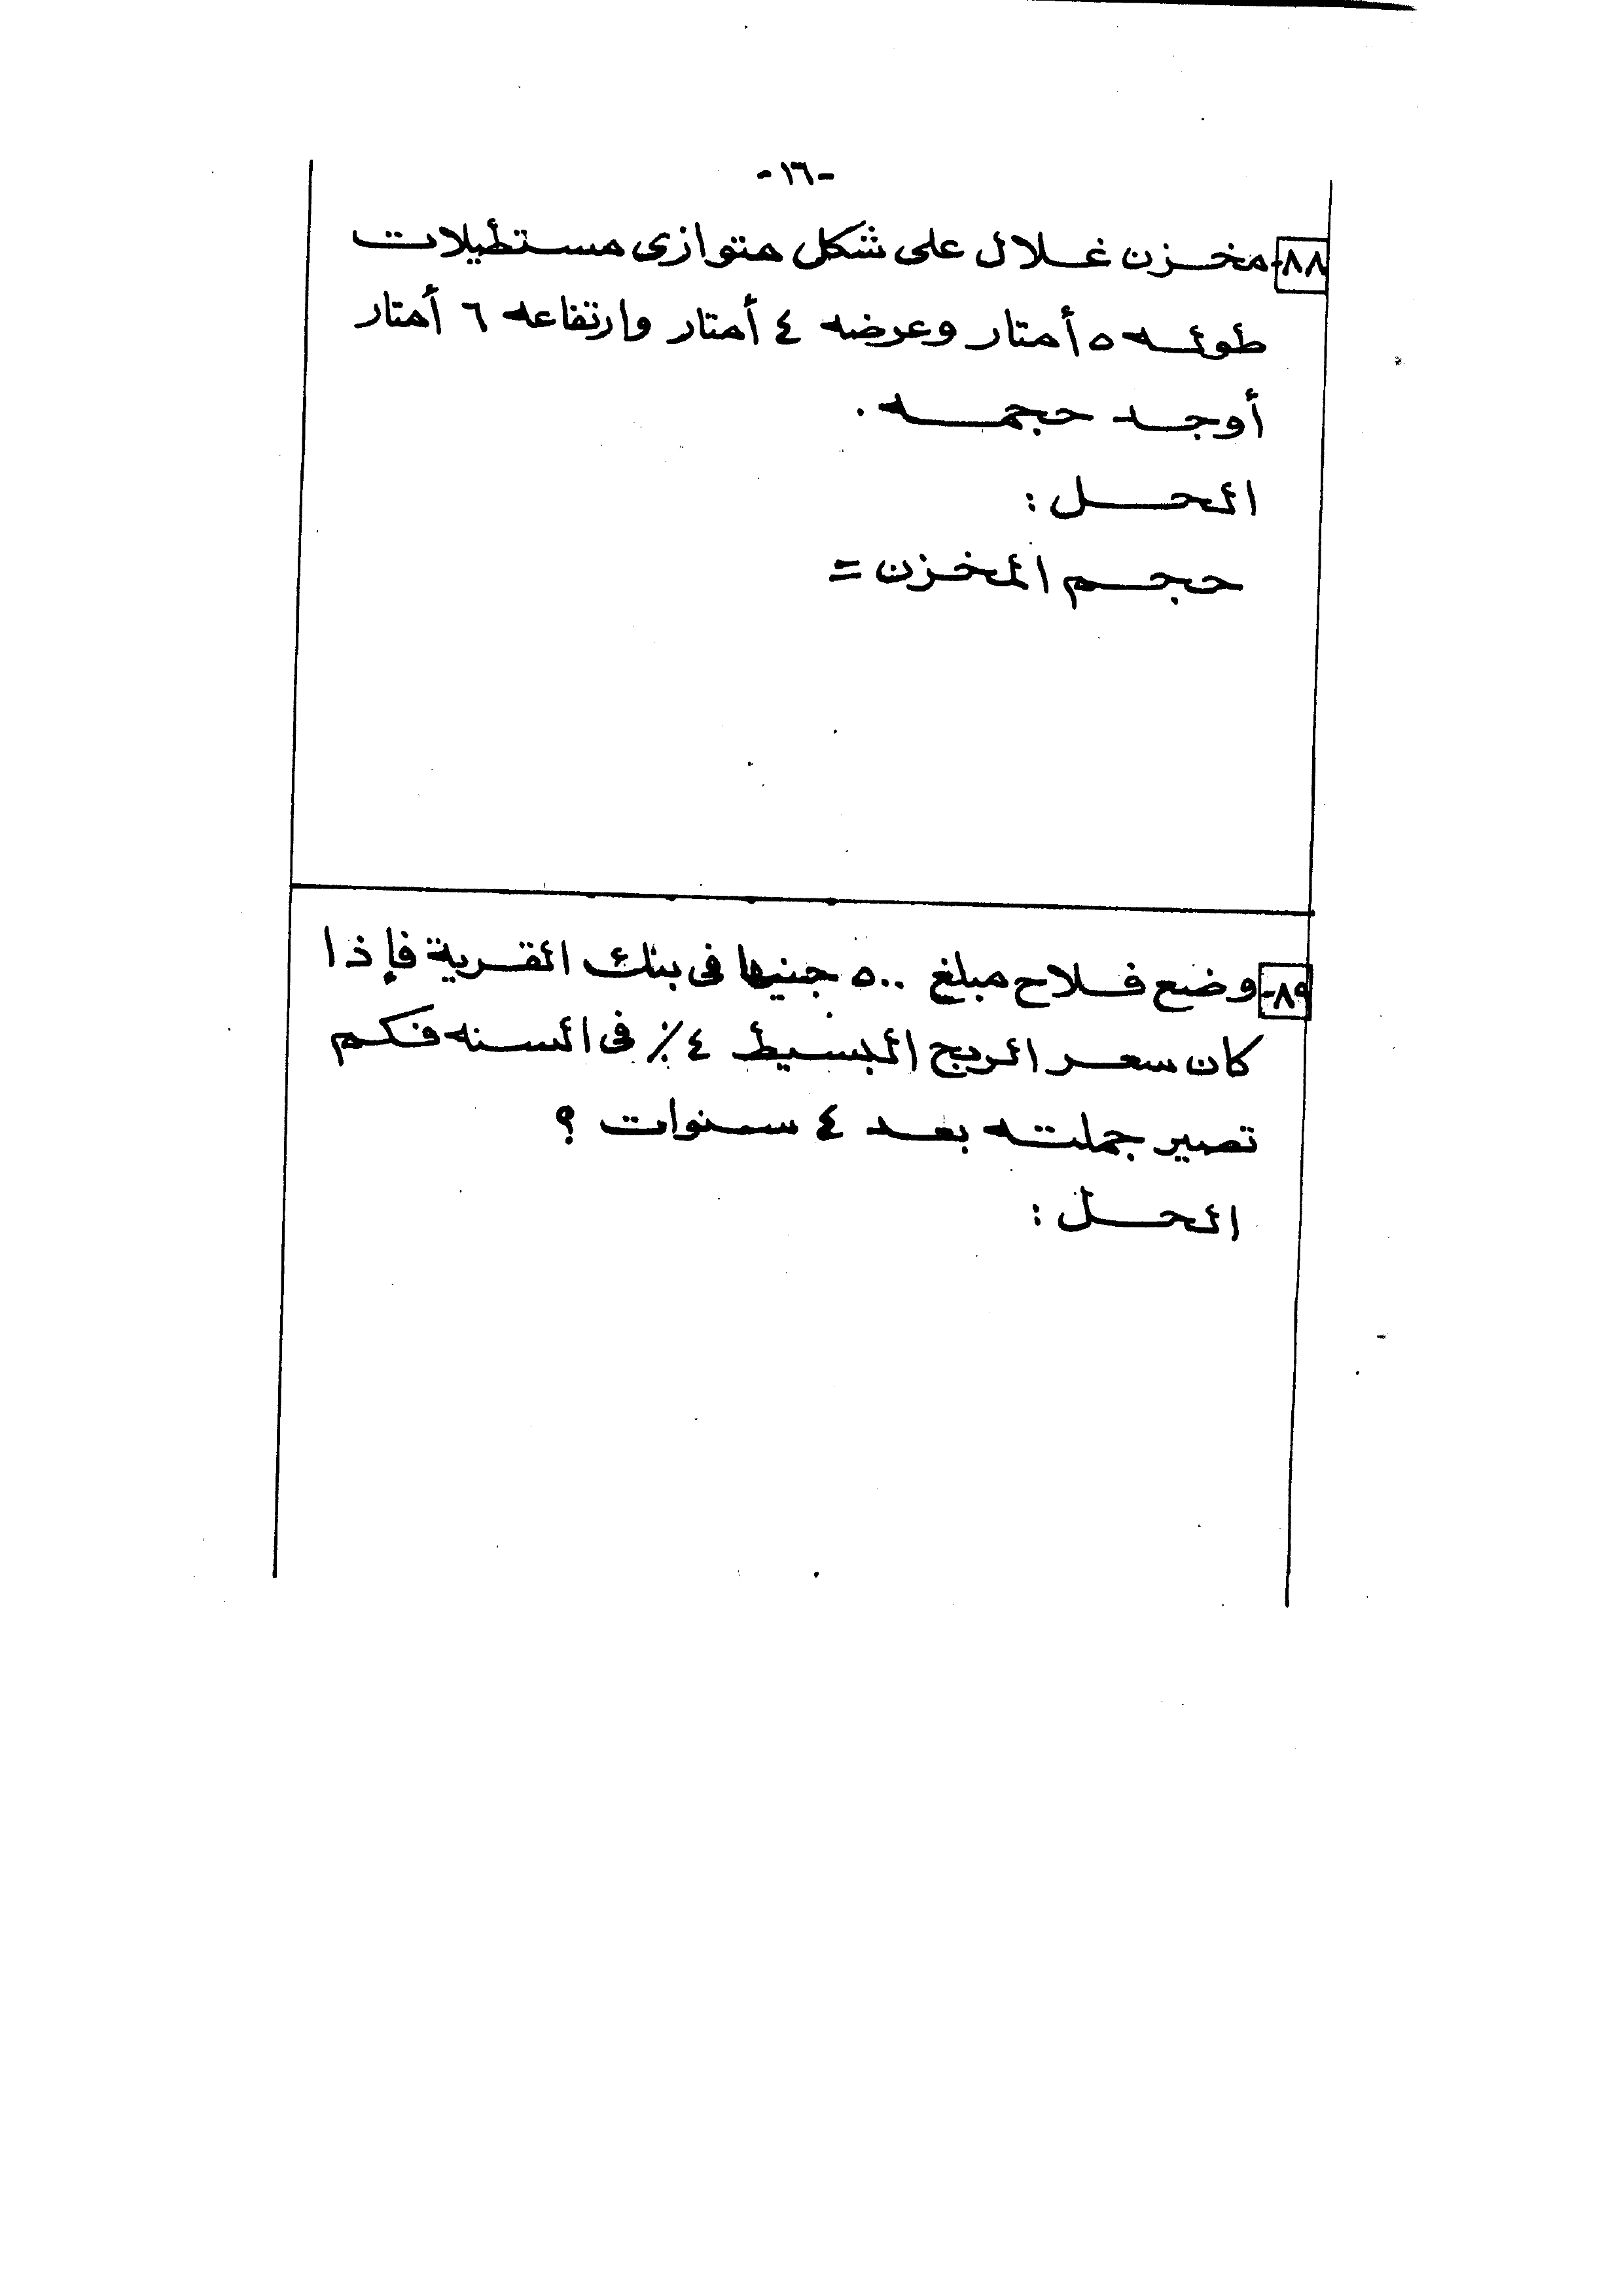 -١٦-
٨٨- مخزن غلال على شكل متوازى مستطيلات
طوله ٥ أمتار وعرضه ٤ أمتار وارتفاعه ٦ أمتار
أوجد حجمه .
الحل :
حجم المخزن =
٨٩- وضع فلاح مبلغ ٥٠٠ جنيها فى بنك القرية فإذا
كان سعر الربح البسيط ٤٪ فى السنه فكم
تصير جملته بعد ٤ سنوات ؟
الحل :